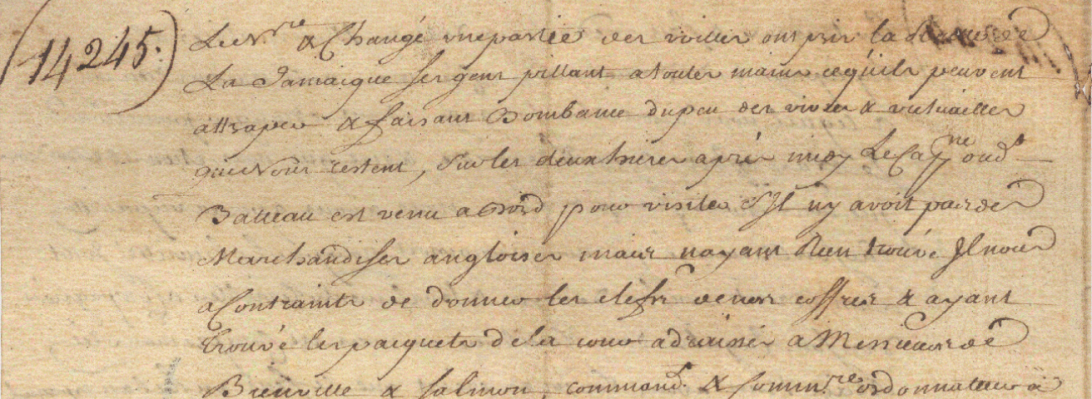 (14245.)
Le N.re & Changé une partie des voilles ont pris la Route de
La Jamaique ses gens pillant a toutes mains ce quils peuvent
attraper & faisant Bombance du peu des vivres & victuailles
qui nous restent, sur les deux heures aprés midy Le Cap.ne dud.t
Batteau est venu a bord pour visiter s'Il ny avoit pas des
Marchandises angloises mais nayant Rien trouvé Il nous
a Contraints de donner les clefs de nos coffres & ayant
trouvé les pacquets de la cour adressés a Messieurs de
Bienville & Salmon, command.t & Comm.re ordonnateur à